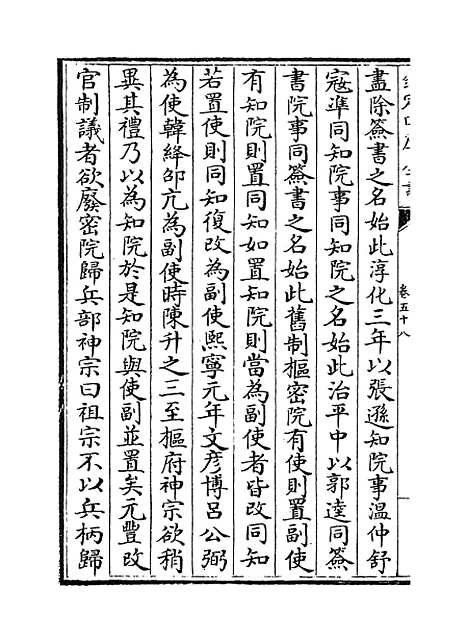 卷五十八
盡除簽書之名始此淳化三年以張遜知院事溫仲舒
寇準同知院事同知院之名始此治平中以郭逵同簽
書院事同簽書之名始此舊制樞密院有使則置副使
有知院則置同知如置知院則當為副使者皆改同知
若置使則同知復改為副使熙寧元年文彥博呂公弼
為使韓絳邵亢為副使時陳升之三至樞府神宗欲稍
異其禮乃以為知院於是知院與使副並置矣元豐改
官制議者欲廢密院歸兵部神宗曰祖宗不以兵柄歸